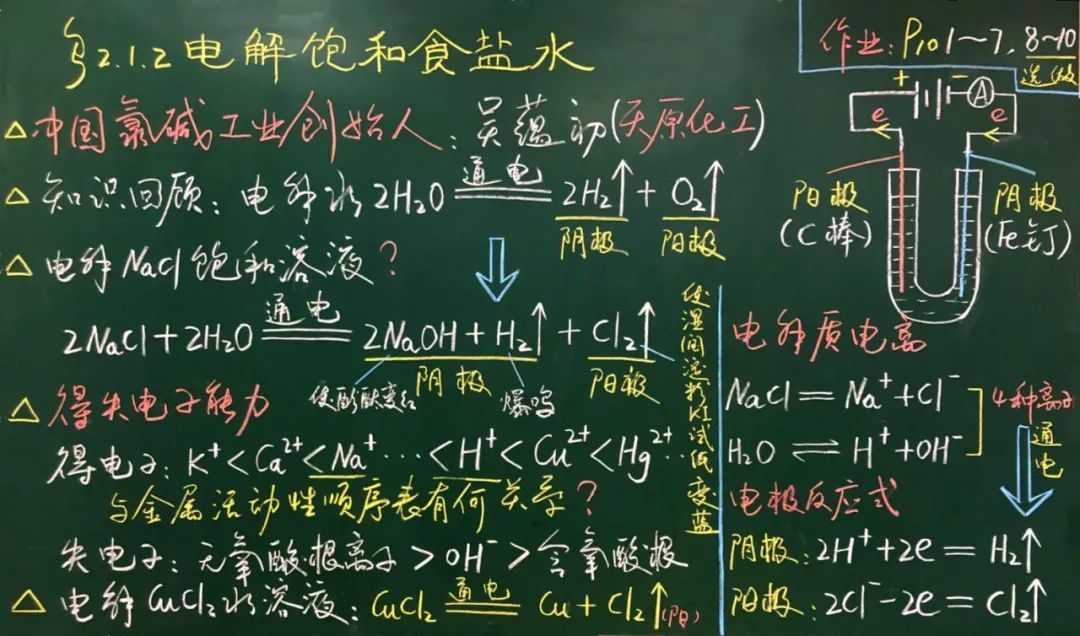 §2.1.2 电解饱和食盐水
△ 中国氯碱工业创始人:吴蕴初(天原化工)
△ 知识回顾:电解水 2H₂O 通电═══ 2H₂↑ + O₂↑
阴极 阳极
△ 电解NaCl饱和溶液?
2NaCl+2H₂O 通电═══ 2NaOH+H₂↑ + Cl₂↑
阴极 阳极
使酚酞变红 爆鸣
使湿润淀粉KI试纸变蓝
△ 得失电子能力
得电子:K⁺<Ca²⁺<Na⁺…<H⁺<Cu²⁺<Hg²⁺…
与金属活动性顺序表有何关系?
失电子:无氧酸根离子>OH⁻>含氧酸根
△ 电解CuCl₂水溶液:CuCl₂ 通电═══ Cu+Cl₂↑(阳)
作业:P₁₀ 1~7, 8~10
选做
+ − A
e e
阳极 阴极
(C棒) (Fe钉)
电解质电离
NaCl═Na⁺+Cl⁻
H₂O⇌H⁺+OH⁻
4种离子
通电
电极反应式
阴极:2H⁺+2e═H₂↑
阳极:2Cl⁻-2e═Cl₂↑